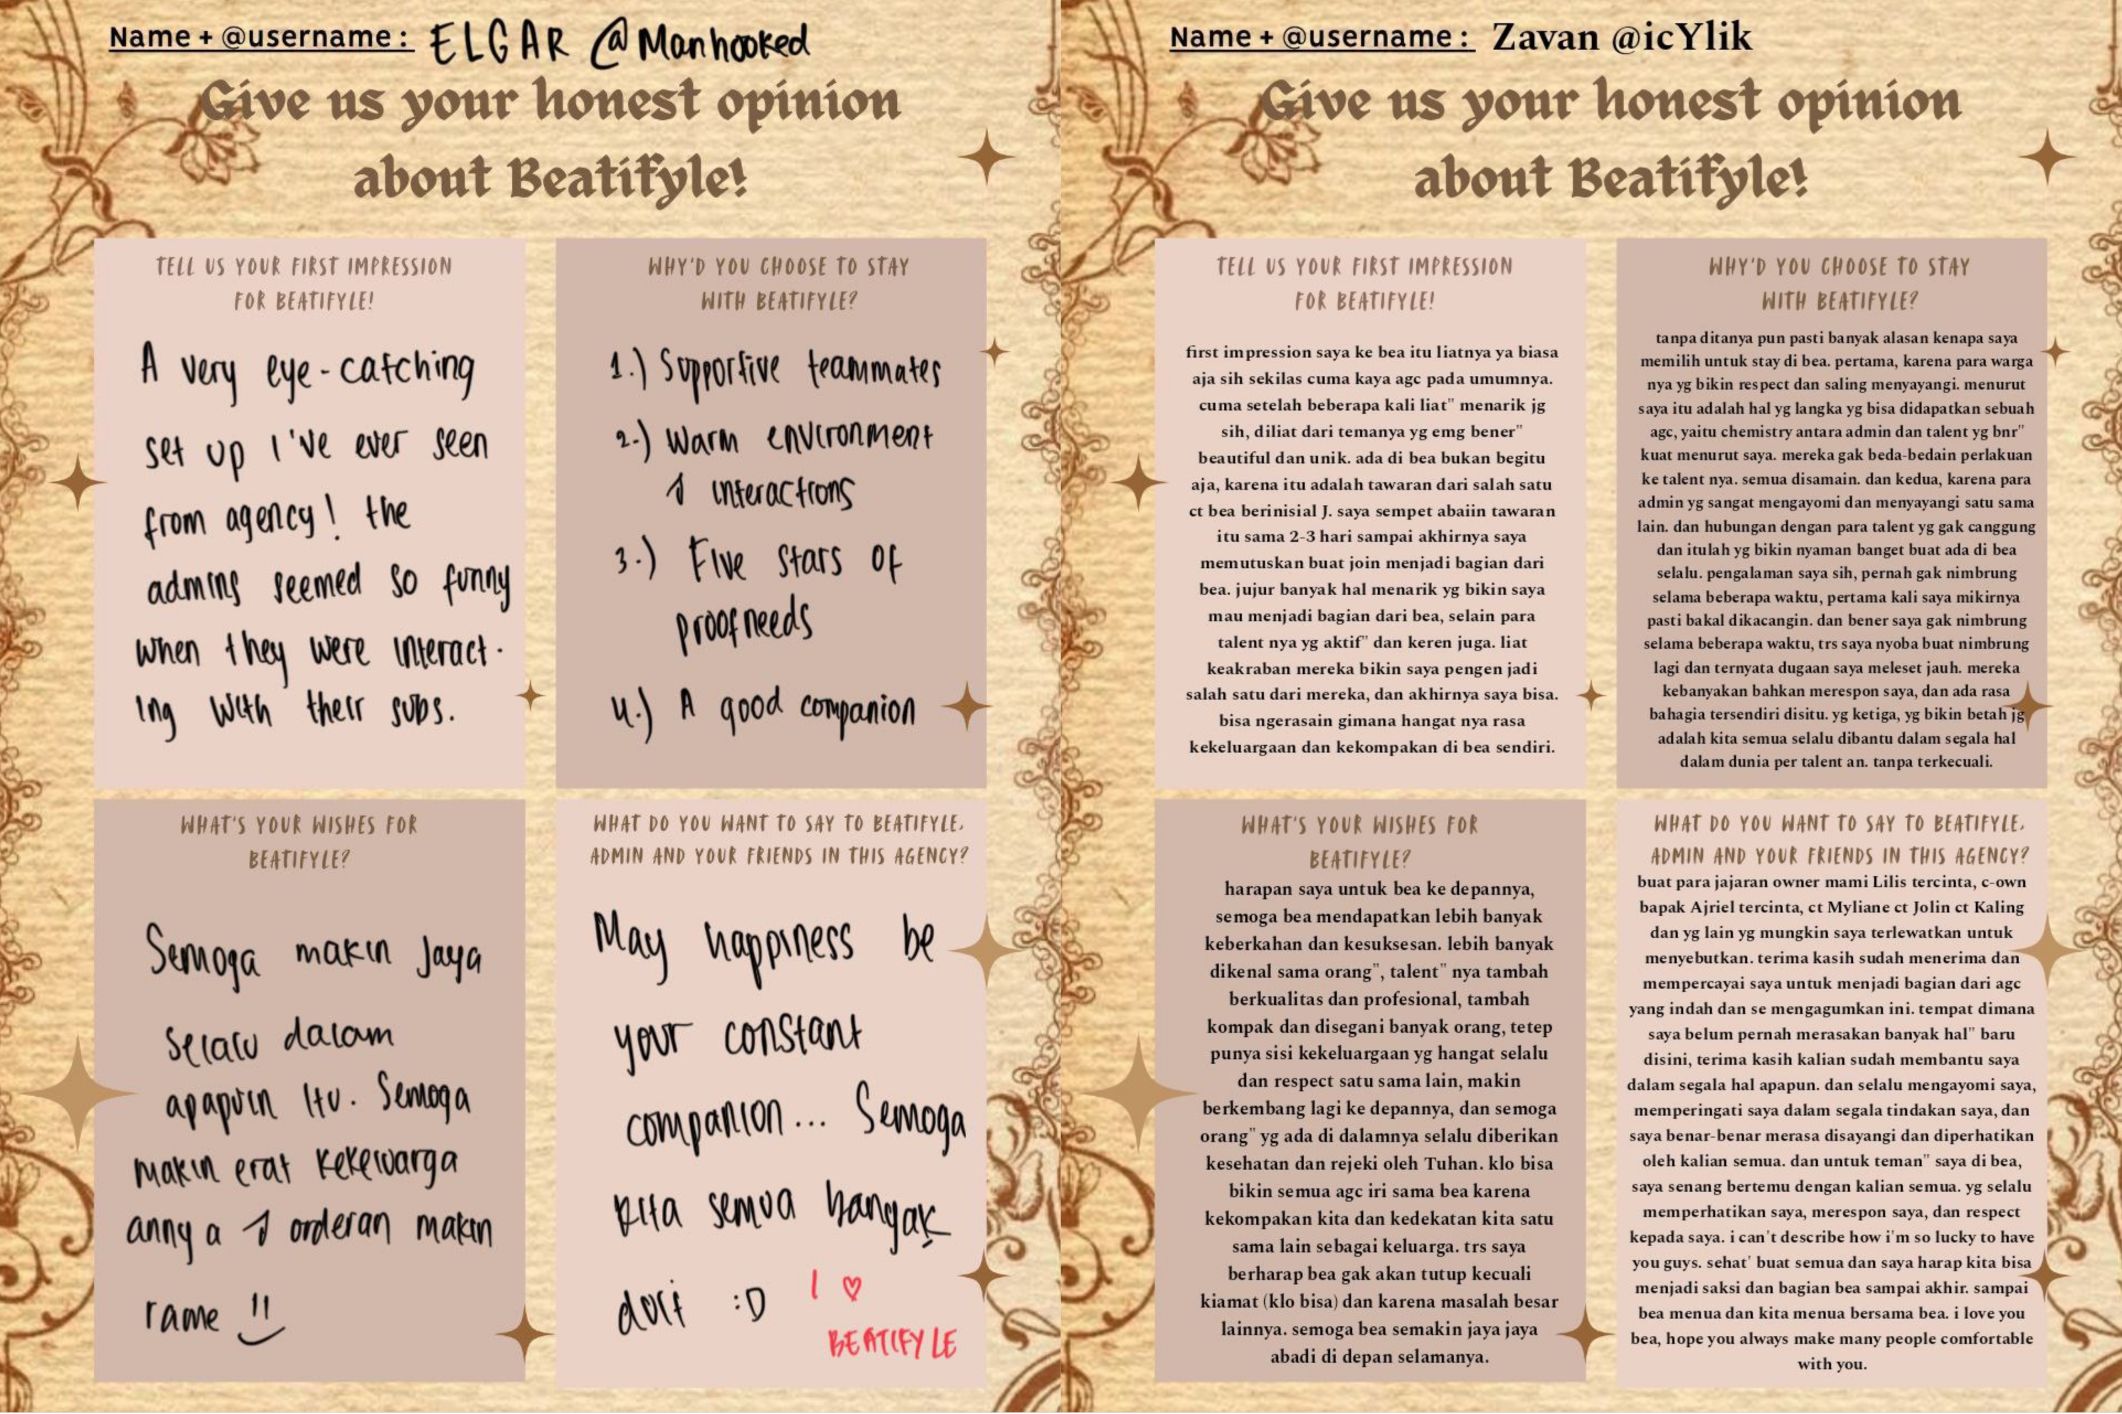 Name + @username : ELGAR @Manhooked
Give us your honest opinion
about Beatifyle!
TELL US YOUR FIRST IMPRESSION
FOR BEATIFYLE!
A very eye-catching
set up I've ever seen
from agency! the
admins seemed so funny
when they were interact-
ing with their subs.
WHY'D YOU CHOOSE TO STAY
WITH BEATIFYLE?
1.) Supportive teammates
2.) Warm environment
& interactions
3.) Five stars of
proofneeds
4.) A good companion
WHAT'S YOUR WISHES FOR
BEATIFYLE?
Semoga makin Jaya
selalu dalam
apapun itu. Semoga
makin erat kekeluarga
annya & orderan makin
rame !!
WHAT DO YOU WANT TO SAY TO BEATIFYLE,
ADMIN AND YOUR FRIENDS IN THIS AGENCY?
May happiness be
your constant
companion... Semoga
kita semua banyak
duit :D I ♡
BEATIFYLE
Name + @username : Zavan @icYlik
Give us your honest opinion
about Beatifyle!
TELL US YOUR FIRST IMPRESSION
FOR BEATIFYLE!
first impression saya ke bea itu liatnya ya biasa
aja sih sekilas cuma kaya agc pada umumnya.
cuma setelah beberapa kali liat" menarik jg
sih, diliat dari temanya yg emg bener"
beautiful dan unik. ada di bea bukan begitu
aja, karena itu adalah tawaran dari salah satu
ct bea berinisial J. saya sempet abaiin tawaran
itu sama 2-3 hari sampai akhirnya saya
memutuskan buat join menjadi bagian dari
bea. jujur banyak hal menarik yg bikin saya
mau menjadi bagian dari bea, selain para
talent nya yg aktif" dan keren juga. liat
keakraban mereka bikin saya pengen jadi
salah satu dari mereka, dan akhirnya saya bisa.
bisa ngerasain gimana hangat nya rasa
kekeluargaan dan kekompakan di bea sendiri.
WHY'D YOU CHOOSE TO STAY
WITH BEATIFYLE?
tanpa ditanya pun pasti banyak alasan kenapa saya
memilih untuk stay di bea. pertama, karena para warga
nya yg bikin respect dan saling menyayangi. menurut
saya itu adalah hal yg langka yg bisa didapatkan sebuah
agc, yaitu chemistry antara admin dan talent yg bnr"
kuat menurut saya. mereka gak beda-bedain perlakuan
ke talent nya. semua disamain. dan kedua, karena para
admin yg sangat mengayomi dan menyayangi satu sama
lain. dan hubungan dengan para talent yg gak canggung
dan itulah yg bikin nyaman banget buat ada di bea
selalu. pengalaman saya sih, pernah gak nimbrung
selama beberapa waktu, pertama kali saya mikirnya
pasti bakal dikacangin. dan bener saya gak nimbrung
selama beberapa waktu, trs saya nyoba buat nimbrung
lagi dan ternyata dugaan saya meleset jauh. mereka
kebanyakan bahkan merespon saya, dan ada rasa
bahagia tersendiri disitu. yg ketiga, yg bikin betah jg
adalah kita semua selalu dibantu dalam segala hal
dalam dunia per talent an. tanpa terkecuali.
WHAT'S YOUR WISHES FOR
BEATIFYLE?
harapan saya untuk bea ke depannya,
semoga bea mendapatkan lebih banyak
keberkahan dan kesuksesan. lebih banyak
dikenal sama orang", talent" nya tambah
berkualitas dan profesional, tambah
kompak dan disegani banyak orang, tetep
punya sisi kekeluargaan yg hangat selalu
dan respect satu sama lain, makin
berkembang lagi ke depannya, dan semoga
orang" yg ada di dalamnya selalu diberikan
kesehatan dan rejeki oleh Tuhan. klo bisa
bikin semua agc iri sama bea karena
kekompakan kita dan kedekatan kita satu
sama lain sebagai keluarga. trs saya
berharap bea gak akan tutup kecuali
kiamat (klo bisa) dan karena masalah besar
lainnya. semoga bea semakin jaya jaya
abadi di depan selamanya.
WHAT DO YOU WANT TO SAY TO BEATIFYLE,
ADMIN AND YOUR FRIENDS IN THIS AGENCY?
buat para jajaran owner mami Lilis tercinta, c-own
bapak Ajriel tercinta, ct Myliane ct Jolin ct Kaling
dan yg lain yg mungkin saya terlewatkan untuk
menyebutkan. terima kasih sudah menerima dan
mempercayai saya untuk menjadi bagian dari agc
yang indah dan se mengagumkan ini. tempat dimana
saya belum pernah merasakan banyak hal" baru
disini, terima kasih kalian sudah membantu saya
dalam segala hal apapun. dan selalu mengayomi saya,
memperingati saya dalam segala tindakan saya, dan
saya benar-benar merasa disayangi dan diperhatikan
oleh kalian semua. dan untuk teman" saya di bea,
saya senang bertemu dengan kalian semua. yg selalu
memperhatikan saya, merespon saya, dan respect
kepada saya. i can't describe how i'm so lucky to have
you guys. sehat' buat semua dan saya harap kita bisa
menjadi saksi dan bagian bea sampai akhir. sampai
bea menua dan kita menua bersama bea. i love you
bea, hope you always make many people comfortable
with you.